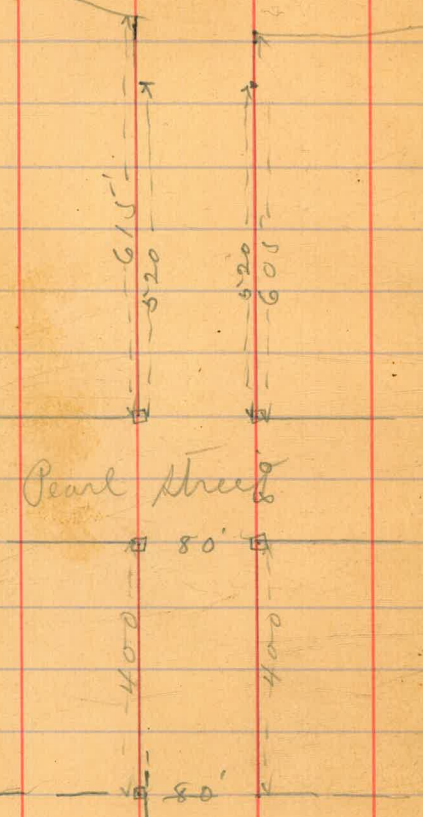 615'
520
520
605
Pearl Street
80'
80'
400
400
80'